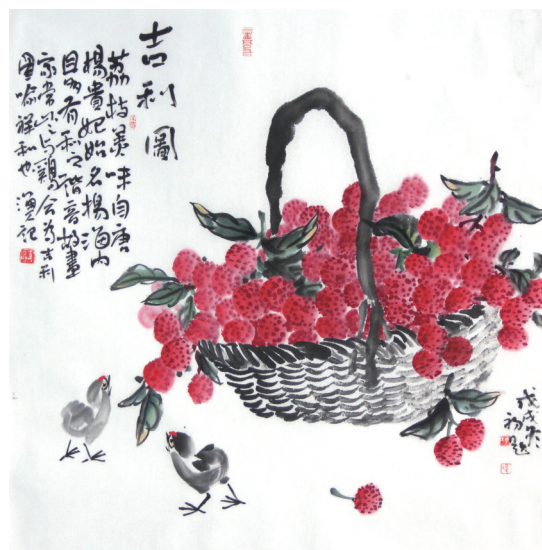 吉利圖
荔枝美味自唐
楊貴妃始名揚海內
因為有利之諧音故畫
家常以之与鷄合為吉利
圖喻祥和也 漫記
戊戌冬
初題